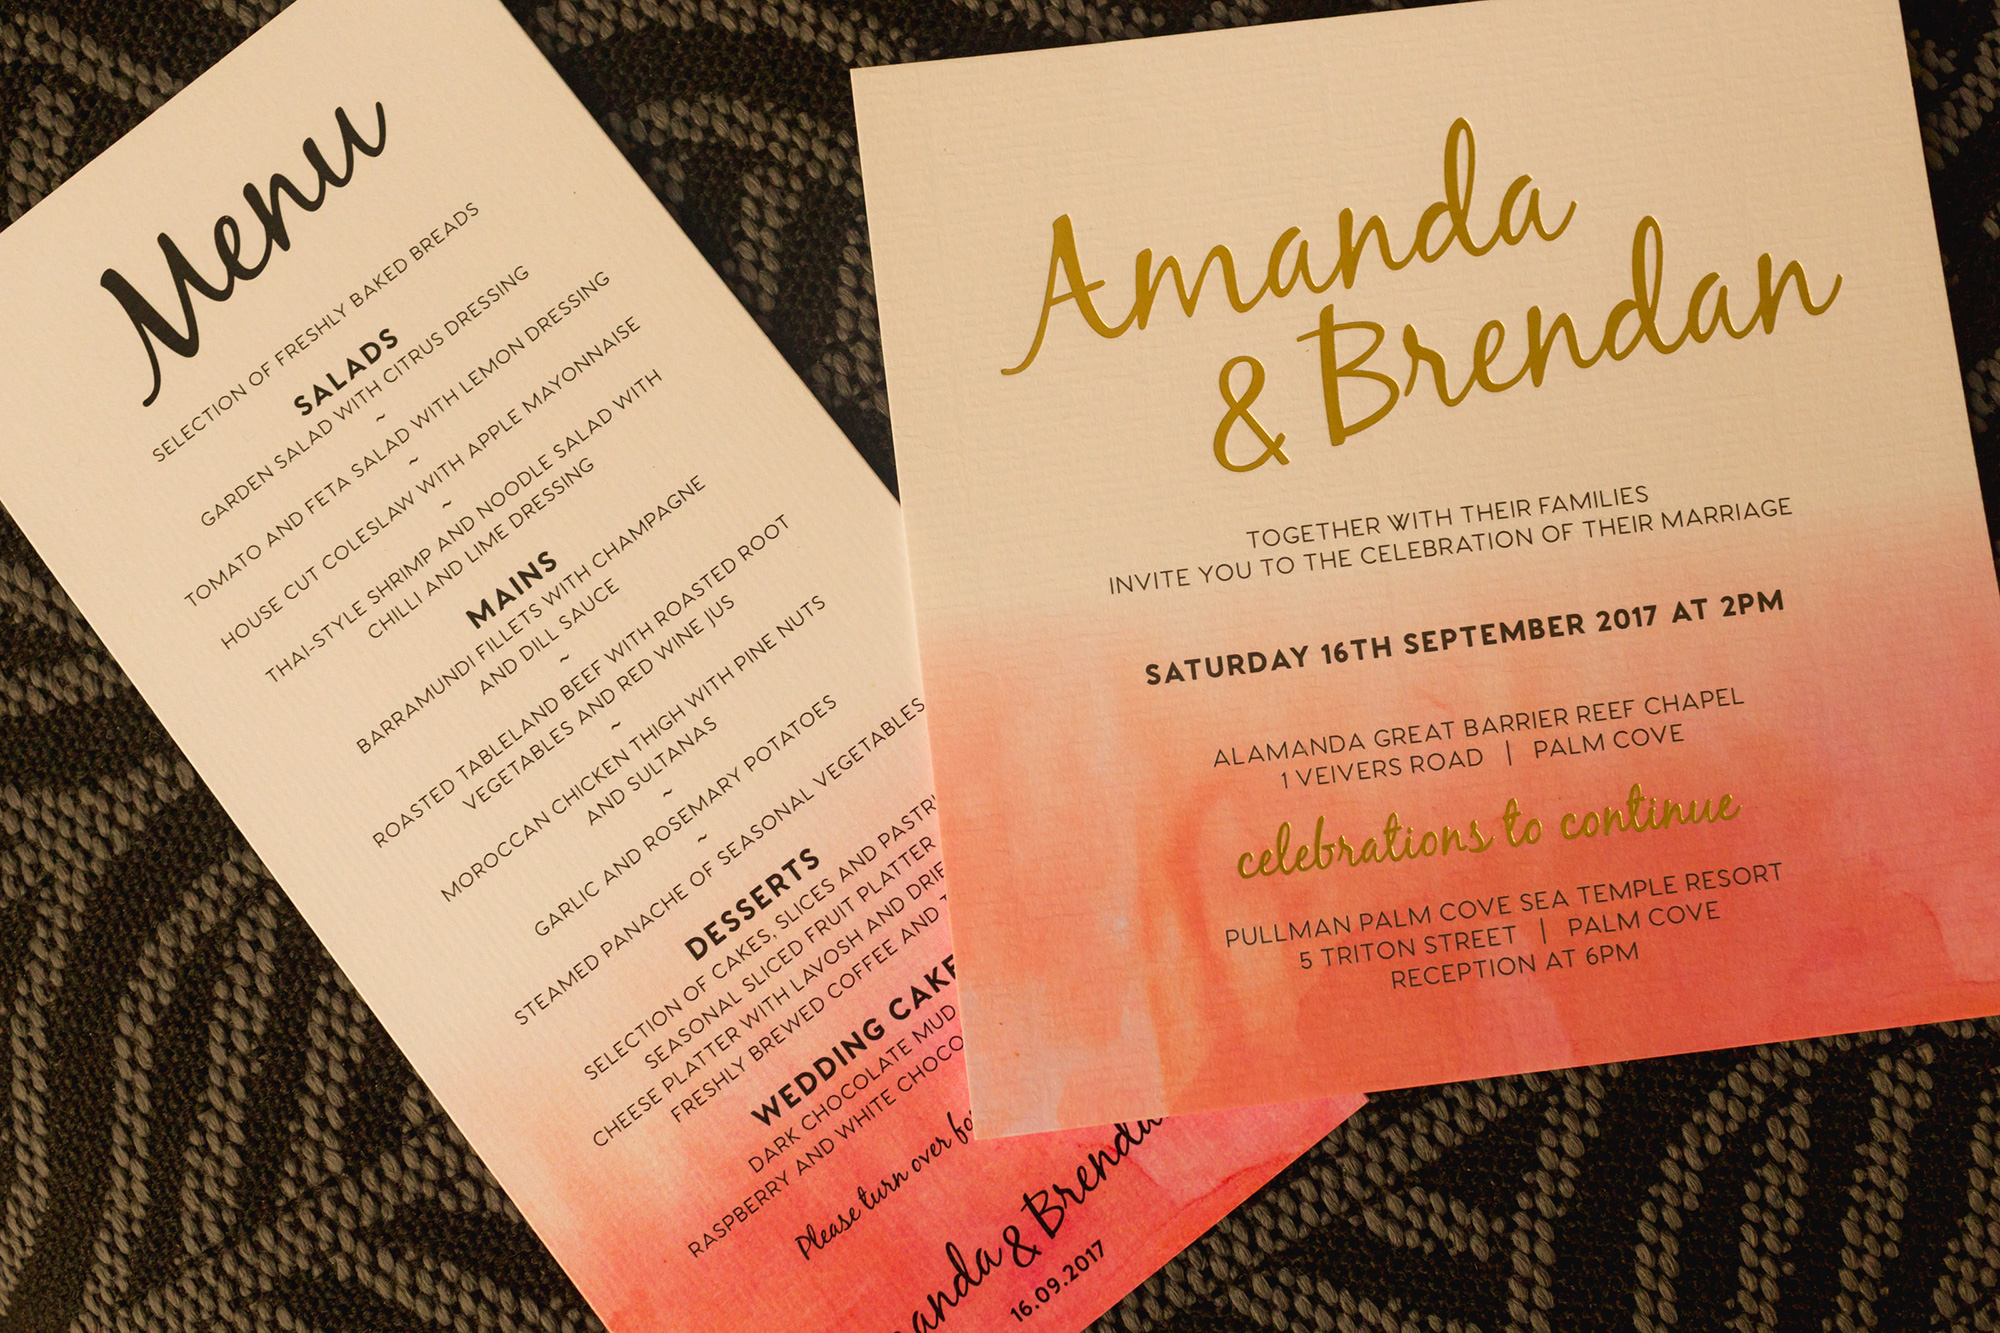 Menu
SELECTION OF FRESHLY BAKED BREADS
SALADS
GARDEN SALAD WITH CITRUS DRESSING
~
TOMATO AND FETA SALAD WITH LEMON DRESSING
~
HOUSE CUT COLESLAW WITH APPLE MAYONNAISE
~
THAI-STYLE SHRIMP AND NOODLE SALAD WITH
CHILLI AND LIME DRESSING
MAINS
BARRAMUNDI FILLETS WITH CHAMPAGNE
AND DILL SAUCE
~
ROASTED TABLELAND BEEF WITH ROASTED ROOT
VEGETABLES AND RED WINE JUS
~
MOROCCAN CHICKEN THIGH WITH PINE NUTS
AND SULTANAS
~
GARLIC AND ROSEMARY POTATOES
~
STEAMED PANACHE OF SEASONAL VEGETABLES
DESSERTS
SELECTION OF CAKES, SLICES AND
SEASONAL SLICED FRUIT PLATTER
CHEESE PLATTER WITH LAVOSH AND
FRESHLY BREWED COFFEE AND
WEDDING CAKE
DARK CHOCOLATE MUD
RASPBERRY AND WHITE
Please turn over
& Brenda
16.09.2017
Amanda
& Brendan
TOGETHER WITH THEIR FAMILIES
INVITE YOU TO THE CELEBRATION OF THEIR MARRIAGE
SATURDAY 16TH SEPTEMBER 2017 AT 2PM
ALAMANDA GREAT BARRIER REEF CHAPEL
1 VEIVERS ROAD | PALM COVE
celebrations to continue
PULLMAN PALM COVE SEA TEMPLE RESORT
5 TRITON STREET | PALM COVE
RECEPTION AT 6PM